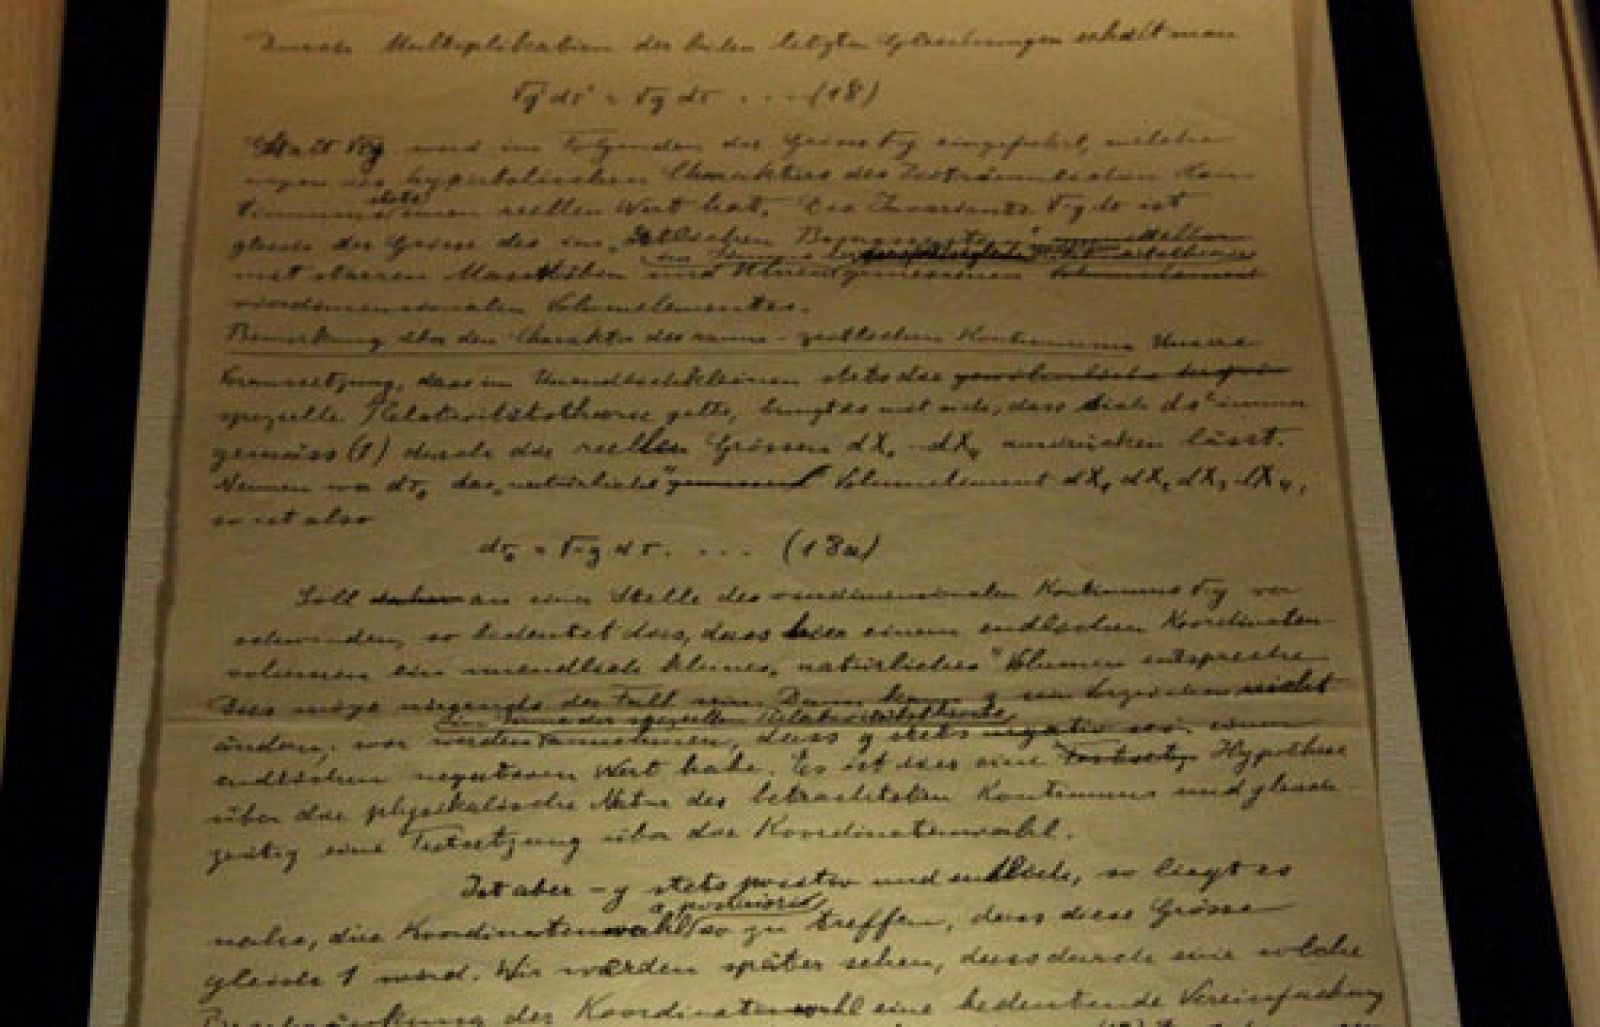 Durch Multiplikation der beiden letzten Gleichungen erhält man
√g' dτ' = √g dτ . . . . (18)
Statt √g wird im Folgenden die Grösse √-g eingeführt, welche
wegen des hyperbolischen Charakters des zeiträumlichen Kon-
tinuums stets einen reellen Wert hat. Die Invariante √-g dτ ist
gleich der Grösse des im „örtlichen Bezugssystem"
mit starren Massstäben und Uhren gemessenen
im Sinne der speziellen Relativitätstheorie
vierdimensionalen Volumelementes.
Bemerkung über den Charakter des raum-zeitlichen Kontinuums Unsere
Voraussetzung, dass im Unendlichkleinen stets die
spezielle Relativitätstheorie gelte, bringt es mit sich, dass sich ds² immer
gemäss (1) durch die reellen Grössen dX₁ .. dX₄ ausdrücken lässt.
Nennen wir dτ₀ das „natürliche" Volumelement dX₁ dX₂ dX₃ dX₄,
so ist also
dτ₀ = √-g dτ. . . . (18a)
Soll daher an einer Stelle des vierdimensionalen Kontinuums √-g ver-
schwinden, so bedeutet dies, dass hier einem endlichen Koordinaten-
volumen ein unendlich kleines „natürliches" Volumen entspreche.
Dies möge nirgends der Fall sein. Dann kann g sein Vorzeichen nicht
im Sinne der speziellen Relativitätstheorie
ändern; wir werden annehmen, dass g stets negativ sei. einen
endlichen negativen Wert habe. Es ist dies eine Hypothese
über die physikalische Natur des betrachteten Kontinuums und gleich
zeitig eine Festsetzung über die Koordinatenwahl.
Ist aber -g stets positiv und endlich, so liegt es
a posteriori
nahe, die Koordinatenwahl so zu treffen, dass diese Grösse
gleich 1 wird. Wir werden später sehen, dass durch eine solche
Beschränkung der Koordinatenwahl eine bedeutende Vereinfachung